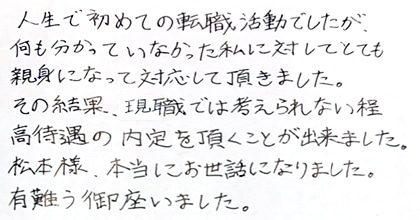 人生で初めての転職活動でしたが、
何も分かっていなかった私に対してとても
親身になって対応して頂きました。
その結果、現職では考えられない程
高待遇の内定を頂くことが出来ました。
松本様、本当にお世話になりました。
有難う御座いました。